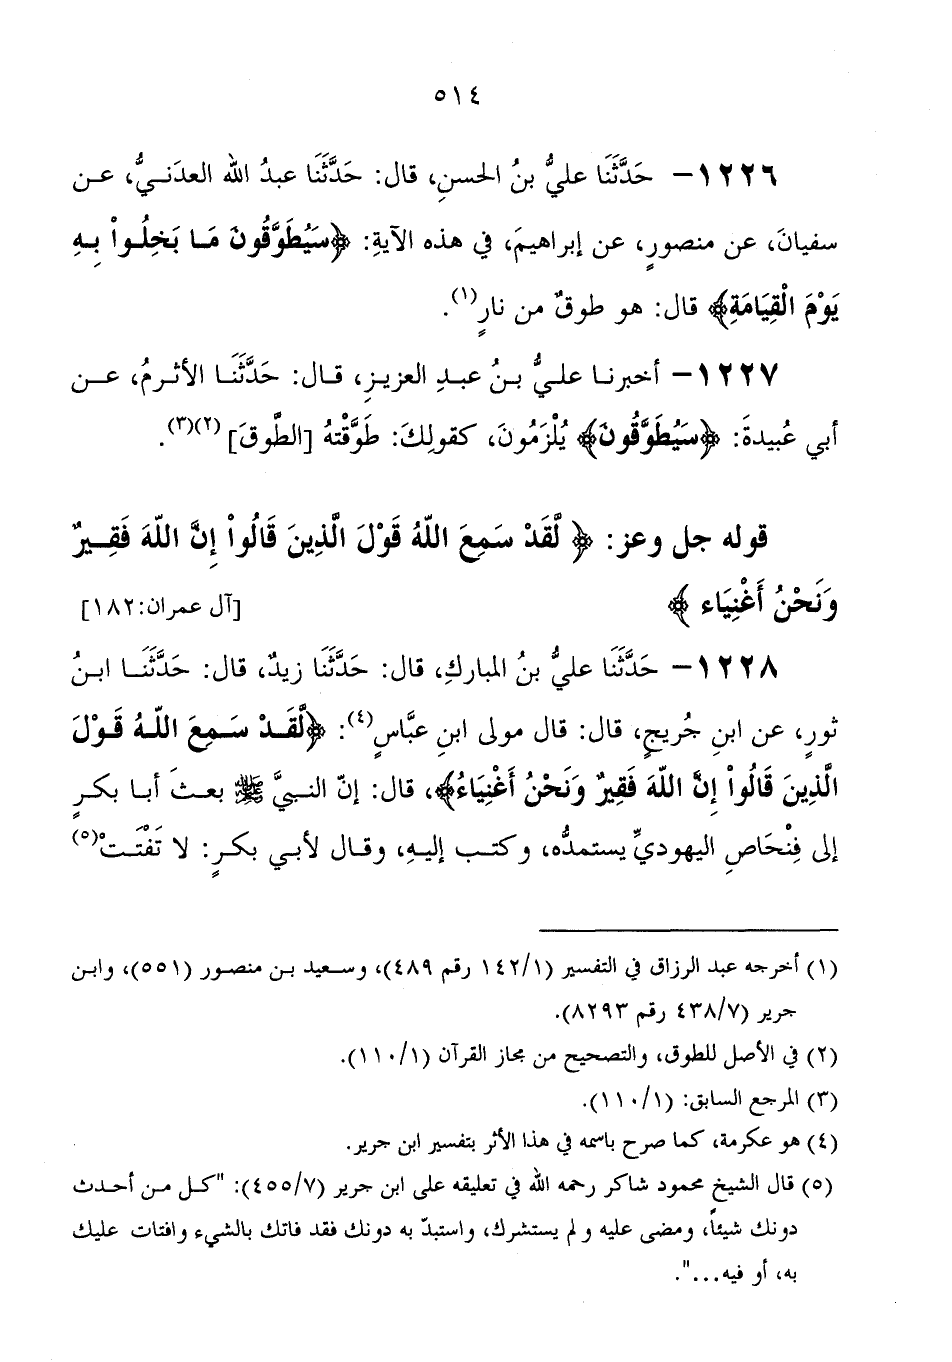 ٥١٤
١٢٢٦- حَدَّثَنَا عليُّ بنُ الحسنِ، قال: حَدَّثَنَا عبدُ الله العدَنيُّ، عن
سفيانَ، عن منصورٍ، عن إبراهيمَ، في هذه الآيةِ: ﴿سَيُطَوَّقُونَ مَا بَخِلُواْ بِهِ
يَوْمَ الْقِيَامَةِ﴾ قال: هو طوقٌ من نارٍ(١).
١٢٢٧- أخبرنا عليُّ بنُ عبدِ العزيزِ، قال: حَدَّثَنَا الأثرمُ، عن
أبي عُبيدةَ: ﴿سَيُطَوَّقُونَ﴾ يُلْزَمُونَ، كقولِكَ: طَوَّقْتهُ [الطَّوقَ](٢)(٣).
قوله جل وعز: ﴿ لَّقَدْ سَمِعَ اللّهُ قَوْلَ الَّذِينَ قَالُواْ إِنَّ اللّهَ فَقِيرٌ
وَنَحْنُ أَغْنِيَاء ﴾ [آل عمران:١٨٢]
١٢٢٨- حَدَّثَنَا عليُّ بنُ المباركِ، قال: حَدَّثَنَا زيدٌ، قال: حَدَّثَنَا ابنُ
ثورٍ، عن ابنِ جُريجٍ، قال: قال مولى ابنِ عبَّاسٍ(٤): ﴿لَّقَدْ سَمِعَ اللّهُ قَوْلَ
الَّذِينَ قَالُواْ إِنَّ اللّهَ فَقِيرٌ وَنَحْنُ أَغْنِيَاءُ﴾، قال: إنّ النبيَّ ﷺ بعثَ أبا بكرٍ
إلى فِنْحَاصِ اليهوديِّ يستمدُّه، وكتب إليهِ، وقال لأبي بكرٍ: لا تَفْتَتْ(٥)
(١) أخرجه عبد الرزاق في التفسير (١٤٢/١ رقم ٤٨٩)، وسعيد بن منصور (٥٥١)، وابن
جرير (٤٣٨/٧ رقم ٨٢٩٣).
(٢) في الأصل للطوق، والتصحيح من مجاز القرآن (١١٠/١).
(٣) المرجع السابق: (١١٠/١).
(٤) هو عكرمة، كما صرح باسمه في هذا الأثر بتفسير ابن جرير.
(٥) قال الشيخ محمود شاكر رحمه الله في تعليقه على ابن جرير (٤٥٥/٧): "كل من أحدث
دونك شيئاً، ومضى عليه ولم يستشرك، واستبدّ به دونك فقد فاتك بالشيء وافتات عليك
به، أو فيه...".